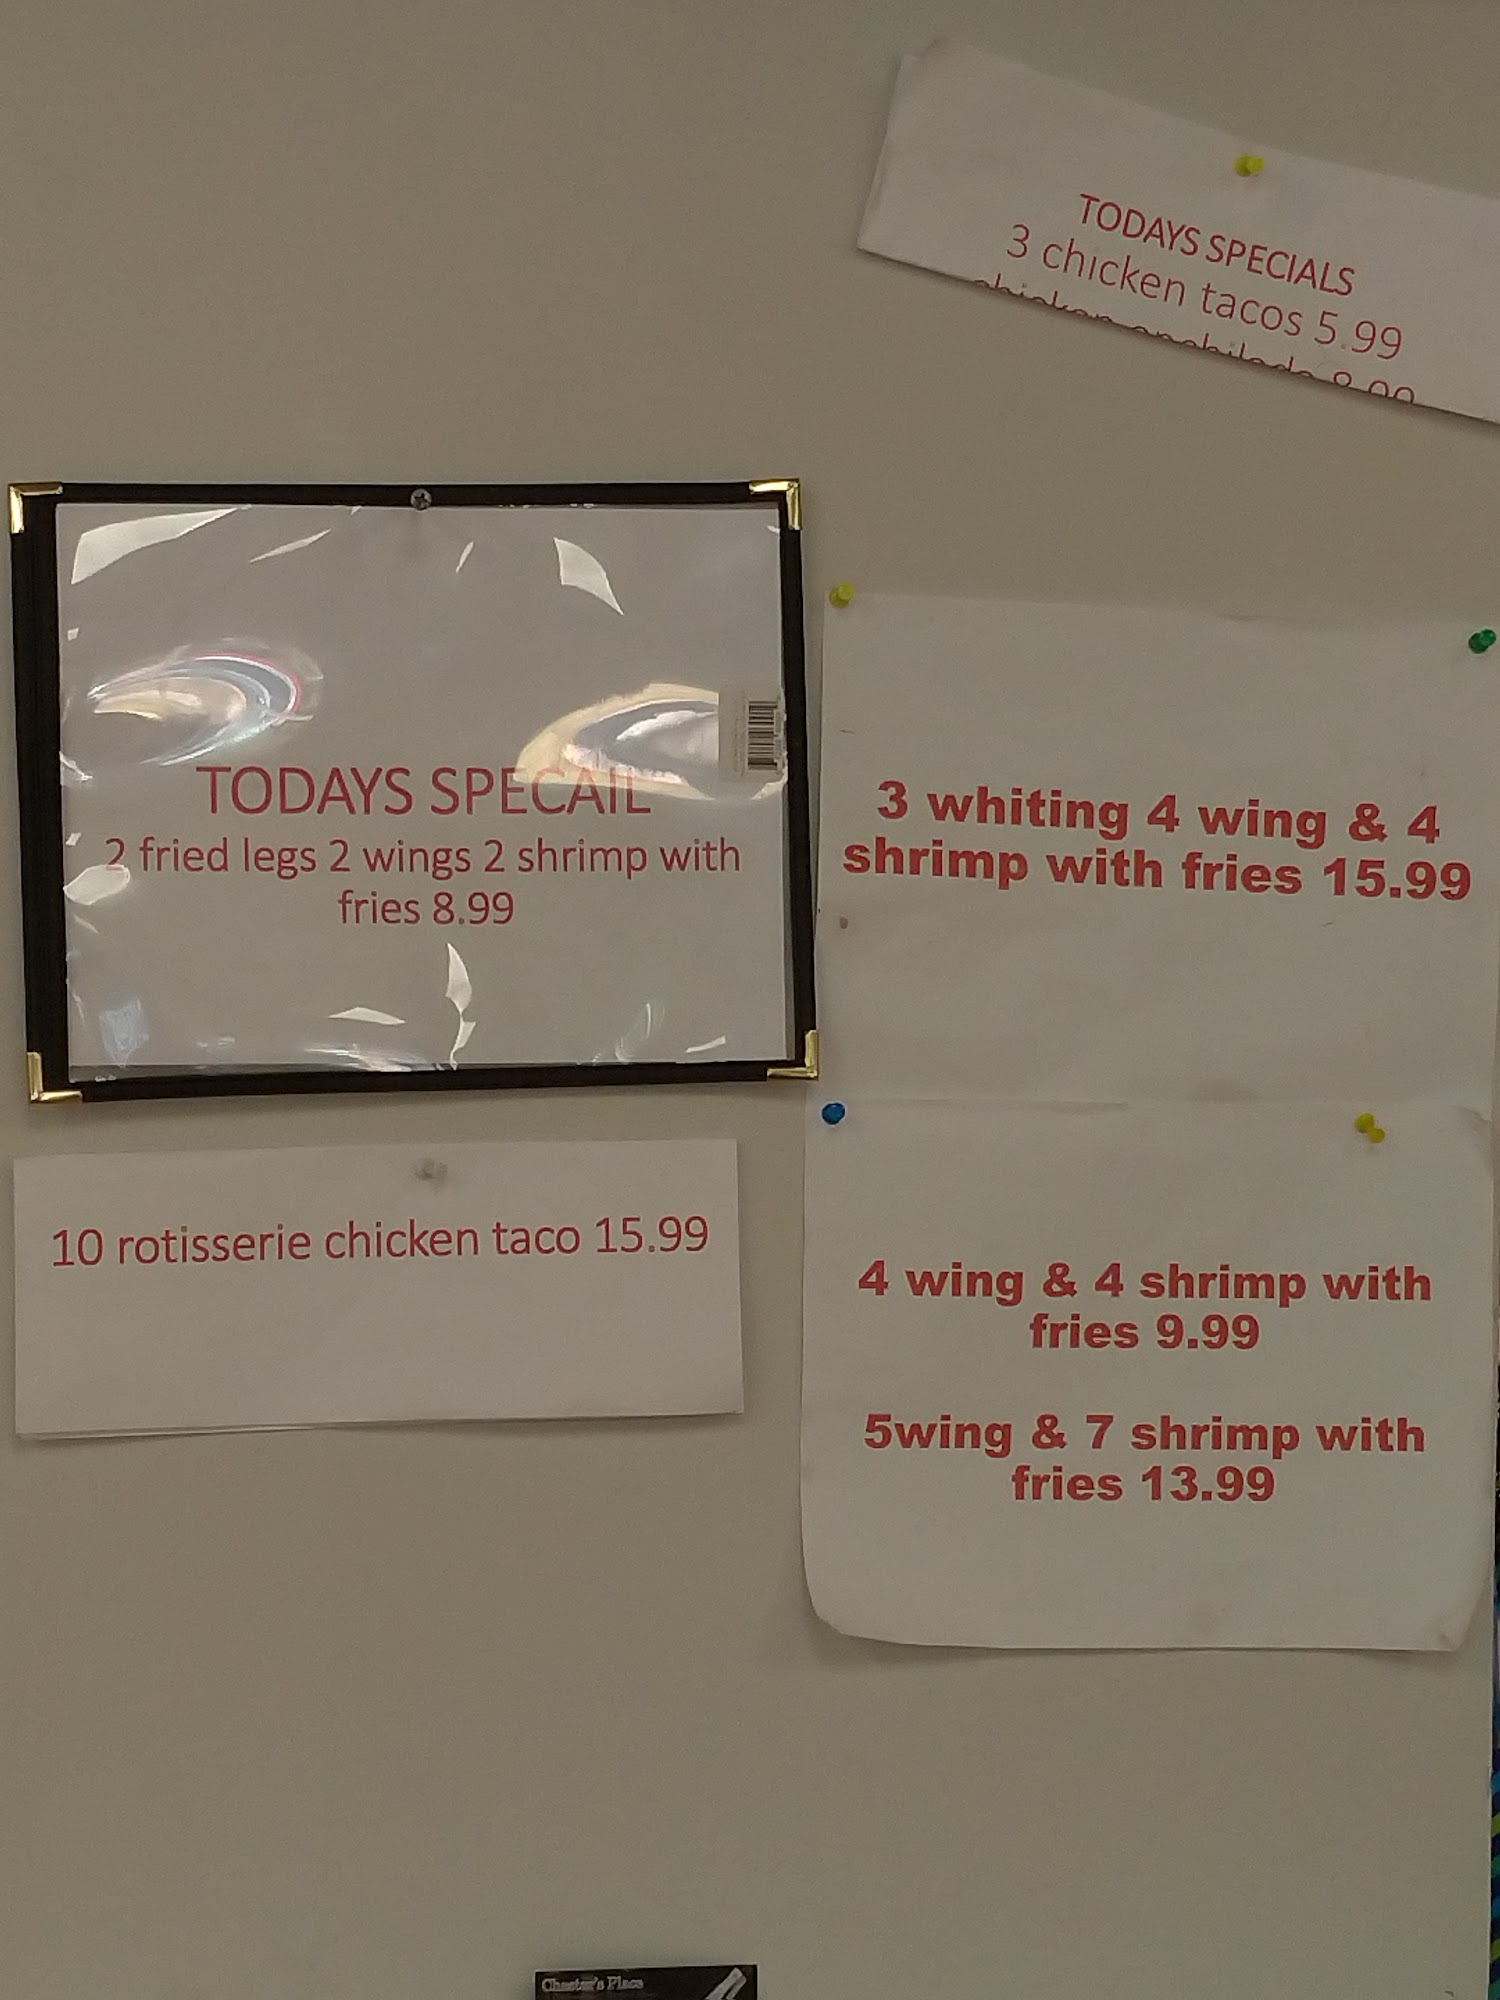 TODAYS SPECIALS
3 chicken tacos 5.99
chicken enchilada 8.99
TODAYS SPECAIL
2 fried legs 2 wings 2 shrimp with
fries 8.99
3 whiting 4 wing & 4
shrimp with fries 15.99
10 rotisserie chicken taco 15.99
4 wing & 4 shrimp with
fries 9.99
5wing & 7 shrimp with
fries 13.99
Chester's Place